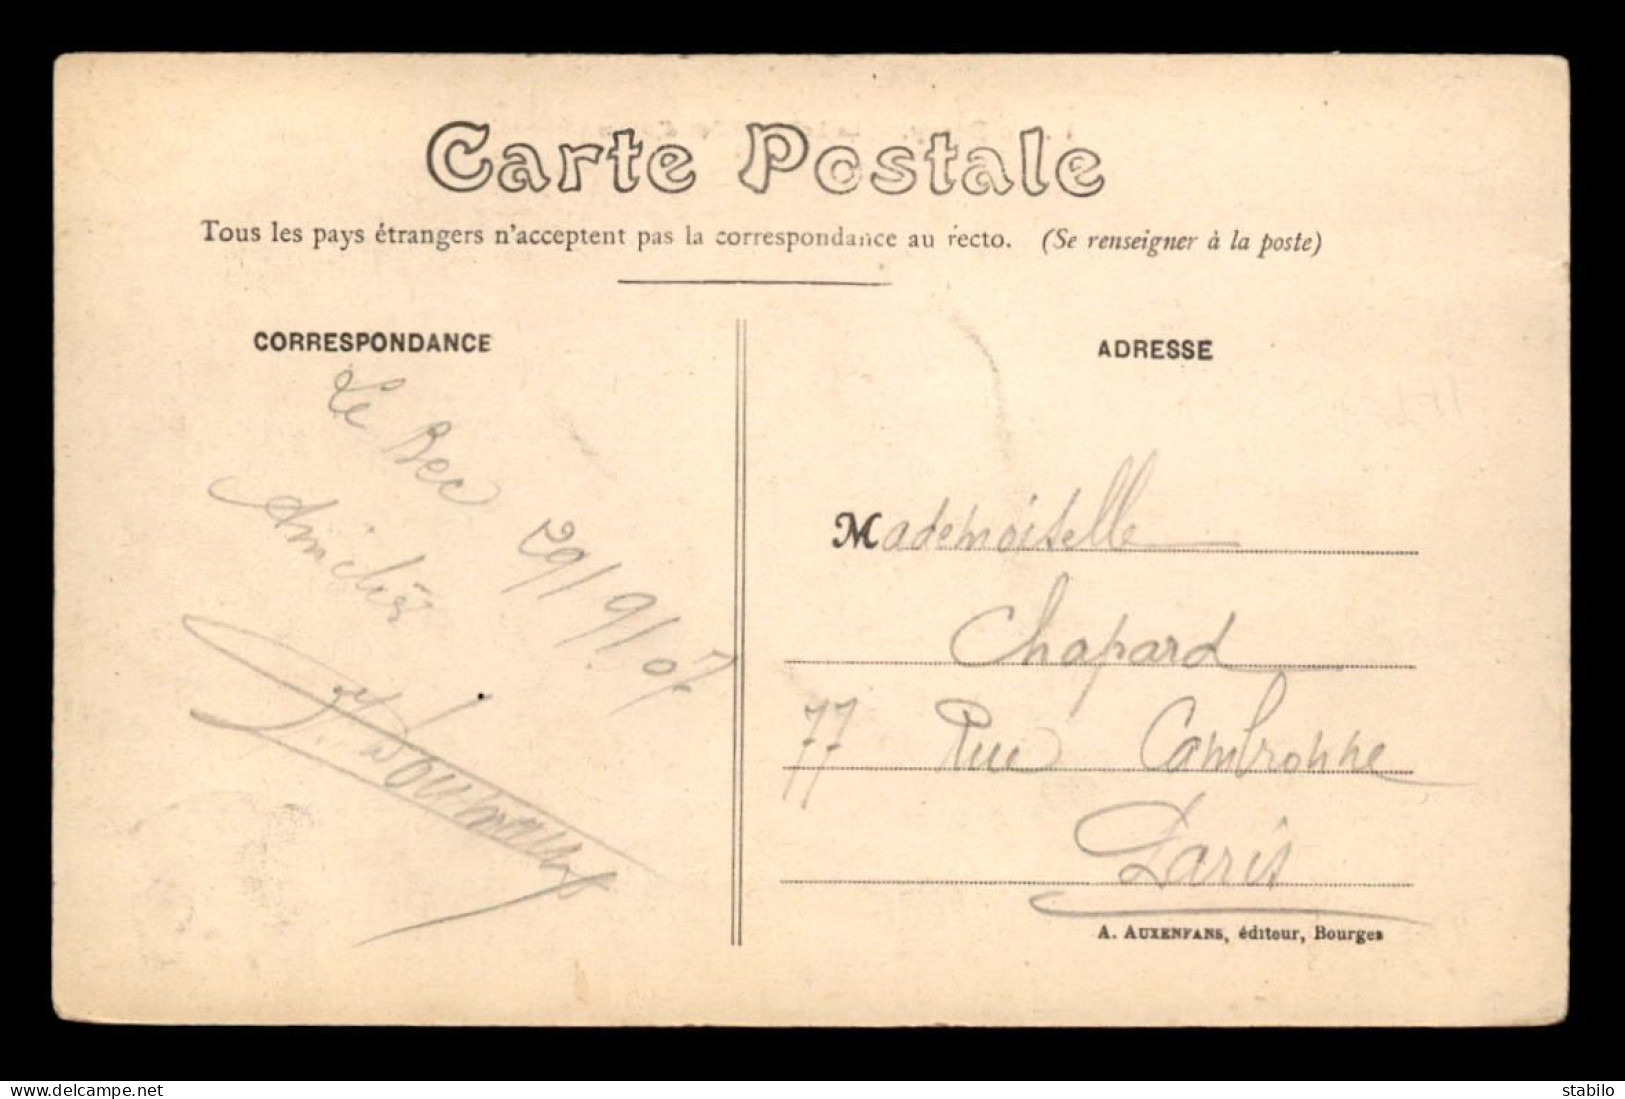 Carte Postale
Tous les pays étrangers n'acceptent pas la correspondance au recto. (Se renseigner à la poste)
CORRESPONDANCE
Le Bec 29/9/07
Amitiés
ADRESSE
Mademoiselle
Chapard
77 Rue Cambronne
Paris
A. AUXENFANS, éditeur, Bourges
www.delcampe.net
stabilo